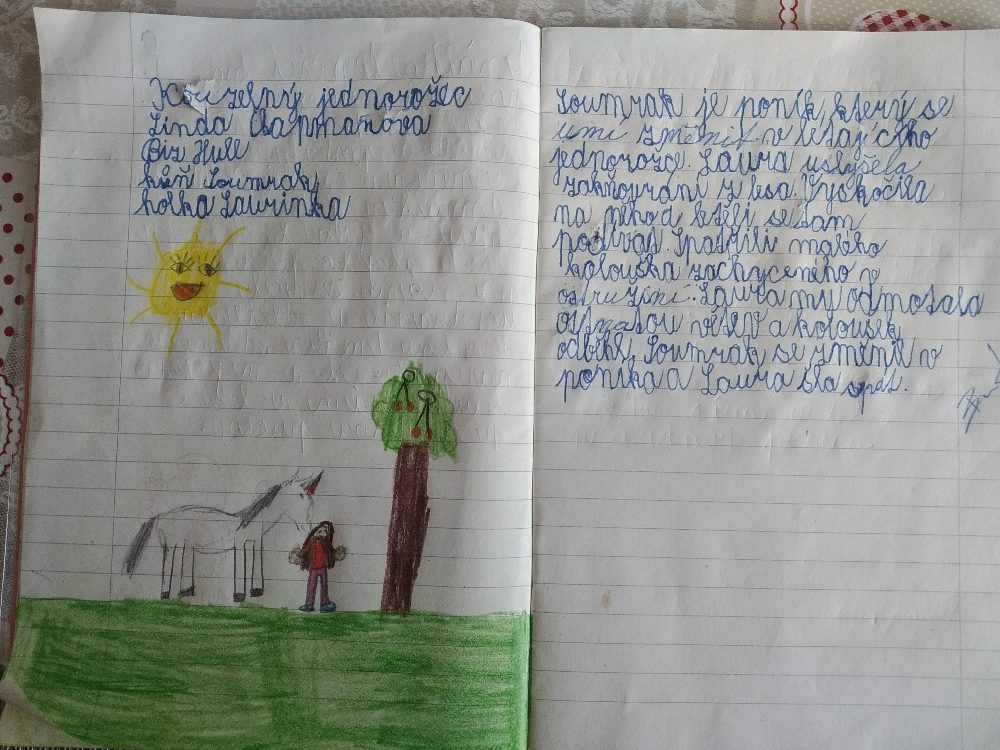 Kouzelný jednorožec
Linda Chapmanová
Biz Hull
kůň Soumrak
holka Laurinka
Soumrak je poník, který se
umí změnit v létajícího
jednorožce. Laura uslyšela
zakňourání z lesa. Vyskočila
na něho a letěli se tam
podívat. Spatřili malého
kolouška zachyceného v
ostružiní. Laura mu odmotala
ostnatou větev a koloušek
odběhl. Soumrak se změnil v
poníka a Laura šla spát.